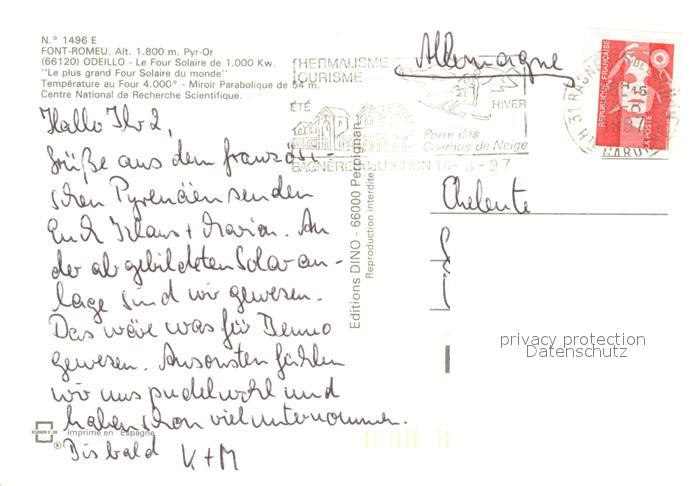 N.° 1496 E
FONT-ROMEU. Alt. 1.800 m. Pyr-Or
(66120) ODEILLO - Le Four Solaire de 1.000 Kw.
"Le plus grand Four Solaire du monde"
Température au Four 4.000° - Miroir Parabolique de 54 m.
Centre National de Recherche Scientifique.
Hallo Ihr 2,
Grüße aus dem französi-
schen Pyrenäen senden
Euch Klaus + Marion. An
der abgebildeten Solaran-
lage sind wir gewesen.
Das wäre was für Benno
gewesen. Ansonsten fühlen
wir uns pudelwohl und
haben schon viel unternommen.
Bis bald K+M
Imprimé en Espagne
Editions DINO - 66000 Perpignan
Reproduction interdite
THERMALISME
TOURISME
ÉTÉ
HIVER
Porte des
Champs de Neige
14-8-97
Allemagne
REPUBLIQUE FRANÇAISE
LA POSTE
privacy protection
Datenschutz